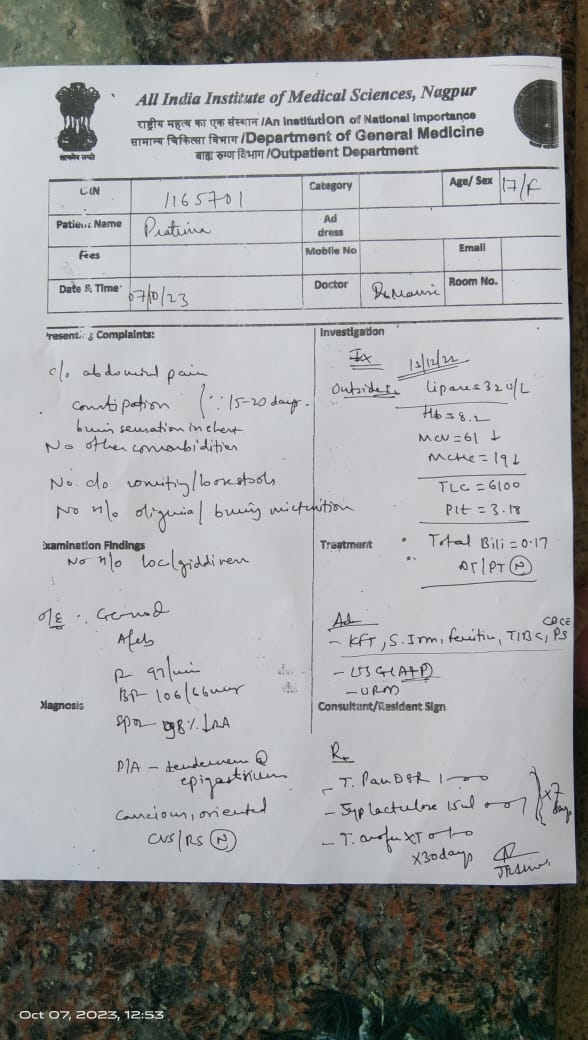 All India Institute of Medical Sciences, Nagpur
राष्ट्रीय महत्व का एक संस्थान /An Institution of National Importance
सामान्य चिकित्सा विभाग /Department of General Medicine
बाह्य रुग्ण विभाग /Outpatient Department
सत्यमेव जयते
1165701
Category
Age/ Sex 17/F
Patient Name
Address
Fees
Mobile No
Email
Date & Time 07/10/23
Doctor
Room No.
Complaints:
c/o abdominal pain
constipation 15-20 days.
in chest
No other comorbidities
No. c/o vomiting/
No h/o oliguria/ micturition
Examination Findings
No h/o loc/giddiness
o/E :
Afeb
P 97/min
BP 106/66
98% RA
P/A - tenderness @
epigastrium
oriented
CVS/RS (N)
Investigation
Ix 13/12/22
Outside Lipase = 32 U/L
Hb = 8.2
MCV = 61 ↓
= 19↓
TLC = 6100
Plt = 3.18
Treatment
Total Bili = 0.17
(N)
Ad
CBC
- KFT, S. Iron, ferritin, TIBC, PS
- USG (A+P)
- URM
Diagnosis
Consultant/Resident Sign
Rx
- T. Pan DSR 1-0-0
- Syp lactulose 15ml
x7 days
- T. XT 0-1-0
X30days
Oct 07, 2023, 12:53